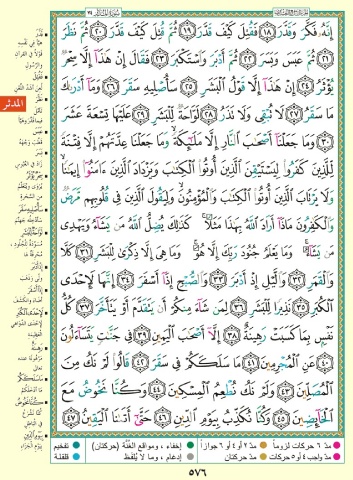 إِنَّهُ فَكَّرَ وَقَدَّرَ ١٨ فَقُتِلَ كَيْفَ قَدَّرَ ١٩ ثُمَّ قُتِلَ كَيْفَ قَدَّرَ ٢٠ ثُمَّ نَظَرَ
٢١ ثُمَّ عَبَسَ وَبَسَرَ ٢٢ ثُمَّ أَدْبَرَ وَاسْتَكْبَرَ ٢٣ فَقَالَ إِنْ هَٰذَا إِلَّا سِحْرٌ
يُؤْثَرُ ٢٤ إِنْ هَٰذَا إِلَّا قَوْلُ الْبَشَرِ ٢٥ سَأُصْلِيهِ سَقَرَ ٢٦ وَمَا أَدْرَاكَ
مَا سَقَرُ ٢٧ لَا تُبْقِي وَلَا تَذَرُ ٢٨ لَوَّاحَةٌ لِّلْبَشَرِ ٢٩ عَلَيْهَا تِسْعَةَ عَشَرَ
٣٠ وَمَا جَعَلْنَا أَصْحَابَ النَّارِ إِلَّا مَلَائِكَةً وَمَا جَعَلْنَا عِدَّتَهُمْ إِلَّا فِتْنَةً
لِّلَّذِينَ كَفَرُوا لِيَسْتَيْقِنَ الَّذِينَ أُوتُوا الْكِتَابَ وَيَزْدَادَ الَّذِينَ آمَنُوا إِيمَانًا
وَلَا يَرْتَابَ الَّذِينَ أُوتُوا الْكِتَابَ وَالْمُؤْمِنُونَ وَلِيَقُولَ الَّذِينَ فِي قُلُوبِهِم مَّرَضٌ
وَالْكَافِرُونَ مَاذَا أَرَادَ اللَّهُ بِهَٰذَا مَثَلًا كَذَٰلِكَ يُضِلُّ اللَّهُ مَن يَشَاءُ وَيَهْدِي
مَن يَشَاءُ وَمَا يَعْلَمُ جُنُودَ رَبِّكَ إِلَّا هُوَ وَمَا هِيَ إِلَّا ذِكْرَىٰ لِلْبَشَرِ ٣١ كَلَّا
وَالْقَمَرِ ٣٢ وَاللَّيْلِ إِذْ أَدْبَرَ ٣٣ وَالصُّبْحِ إِذَا أَسْفَرَ ٣٤ إِنَّهَا لَإِحْدَى
الْكُبَرِ ٣٥ نَذِيرًا لِّلْبَشَرِ ٣٦ لِمَن شَاءَ مِنكُمْ أَن يَتَقَدَّمَ أَوْ يَتَأَخَّرَ ٣٧ كُلُّ
نَفْسٍ بِمَا كَسَبَتْ رَهِينَةٌ ٣٨ إِلَّا أَصْحَابَ الْيَمِينِ ٣٩ فِي جَنَّاتٍ يَتَسَاءَلُونَ
٤٠ عَنِ الْمُجْرِمِينَ ٤١ مَا سَلَكَكُمْ فِي سَقَرَ ٤٢ قَالُوا لَمْ نَكُ مِنَ
الْمُصَلِّينَ ٤٣ وَلَمْ نَكُ نُطْعِمُ الْمِسْكِينَ ٤٤ وَكُنَّا نَخُوضُ مَعَ
الْخَائِضِينَ ٤٥ وَكُنَّا نُكَذِّبُ بِيَوْمِ الدِّينِ ٤٦ حَتَّىٰ أَتَانَا الْيَقِينُ ٤٧
المدثر
مدّ ٦ حركات لزوماً
مدّ ٢ أو ٤ أو ٦ جوازاً
إخفاء، ومواقع الغنّة (حركتان)
تفخيم
مدّ واجب ٤ أو ٥ حركات
مدّ حركتان
إدغام، وما لا يُلفظ
قلقلة
٥٧٦